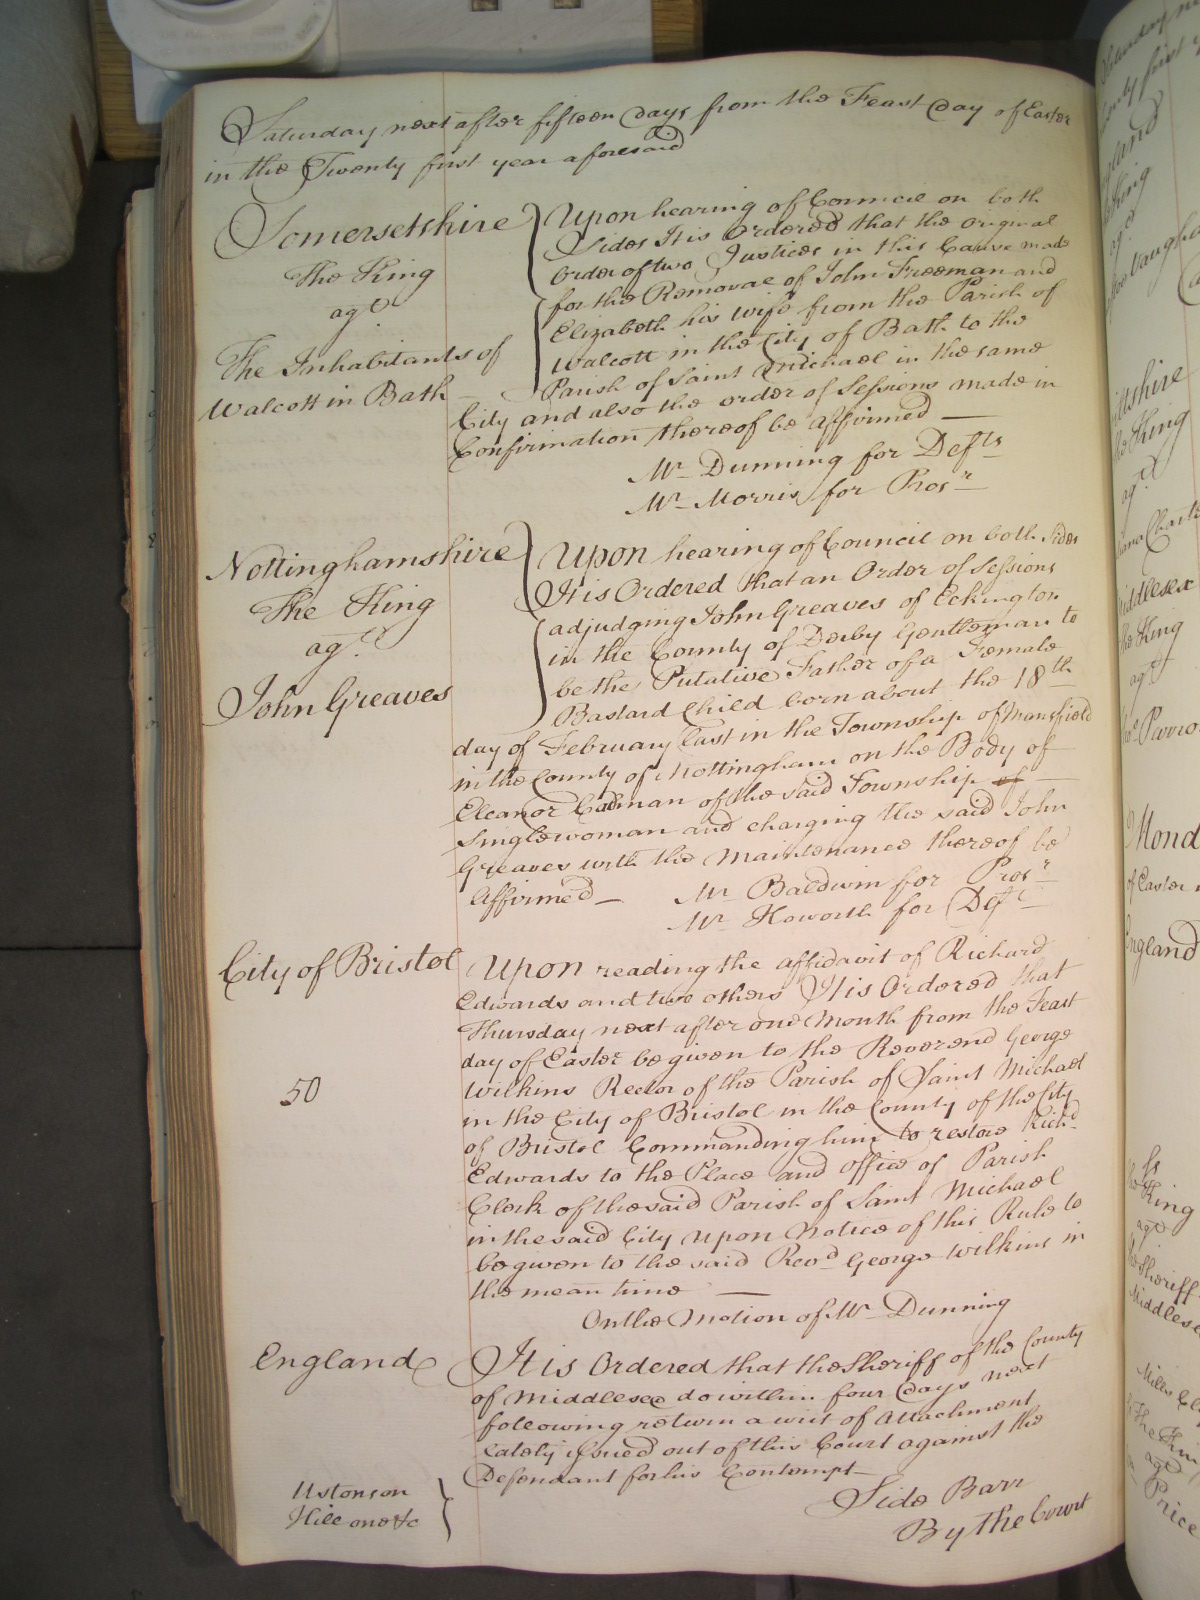 Saturday next after fifteen days from the Feast day of Easter
in the Twenty first year aforesaid
Somersetshire
The King
agt
The Inhabitants of
Walcott in Bath
Upon hearing of Councel on both
Sides It is Ordered that the Original
Order of two Justices in this Cause made
for the Removal of John Freeman and
Elizabeth his wife from the Parish of
Walcott in the City of Bath to the
Parish of Saint Michael in the same
City and also the order of Sessions made in
Confirmation thereof be affirmed
Mr Dunning for Defts
Mr Morris for Prosr
Nottinghamshire
The King
agt
John Greaves
Upon hearing of Council on both Sides
It is Ordered that an Order of Sessions
adjudging John Greaves of Eckington
in the County of Derby Gentleman to
be the Putative Father of a Female
Bastard Child born about the 18th
day of February last in the Township of Mansfield
in the County of Nottingham on the Body of
Eleanor Cadman of the said Township of
Singlewoman and charging the said John
Greaves with the Maintenance thereof be
Affirmed
Mr Baldwin for Prosr
Mr Howorth for Deft
City of Bristol
50
Upon reading the affidavit of Richard
Edwards and two others It is Ordered that
Thursday next after one Month from the Feast
day of Easter be given to the Reverend George
Wilkins Rector of the Parish of Saint Michael
in the City of Bristol in the County of the City
of Bristol Commanding him to restore Richd
Edwards to the Place and office of Parish
Clerk of the said Parish of Saint Michael
in the said City upon Notice of this Rule to
be given to the said Revd George Wilkins in
the mean time
On the Motion of Mr Dunning
England
It is Ordered that the Sheriff of the County
of Middlesex do within four days next
following return a writ of Attachment
lately issued out of this Court against the
Defendant for his Contempt
Ustonson
Hill one &c
Side Barr
By the Court
Mond
of Easter
England
The King
agt
Middlesex
The King
agt
The King
agt
Sheriff
Middlesex
Price